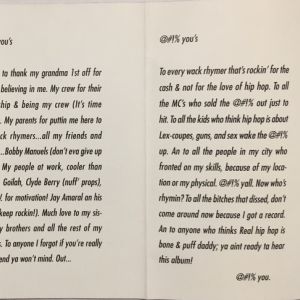 you's
to thank my grandma 1st off for
believing in me. My crew for their
ship & being my crew (It's time
. My parents for puttin me here to
ck rhymers...all my friends and
...Bobby Manuels (don't eva give up
My people at work, cooler than
Goilah, Clyde Berry (nuff' props),
for motivation! Jay Amaral on his
keep rockin!). Much love to my sis-
y brothers and all the rest of my
s. To anyone I forgot if you're really
end ya won't mind. Out...
@#!% you's
To every wack rhymer that's rockin' for the
cash & not for the love of hip hop. To all
the MC's who sold the @#!% out just to
hit. To all the kids who think hip hop is about
Lex-coupes, guns, and sex wake the @#!%
up. An to all the people in my city who
fronted on my skills, because of my loca-
tion or my physical. @#!% yall. Now who's
rhymin? To all the bitches that dissed, don't
come around now because I got a record.
An to anyone who thinks Real hip hop is
bone & puff daddy; ya aint ready ta hear
this album!
@#!% you.